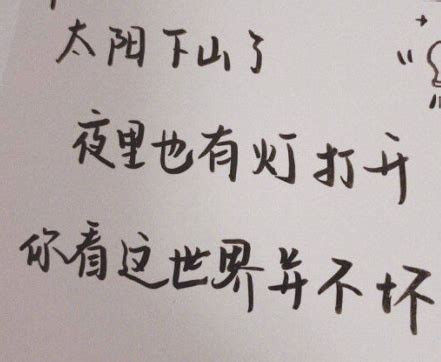 太阳下山了
夜里也有灯打开
你看这世界并不坏